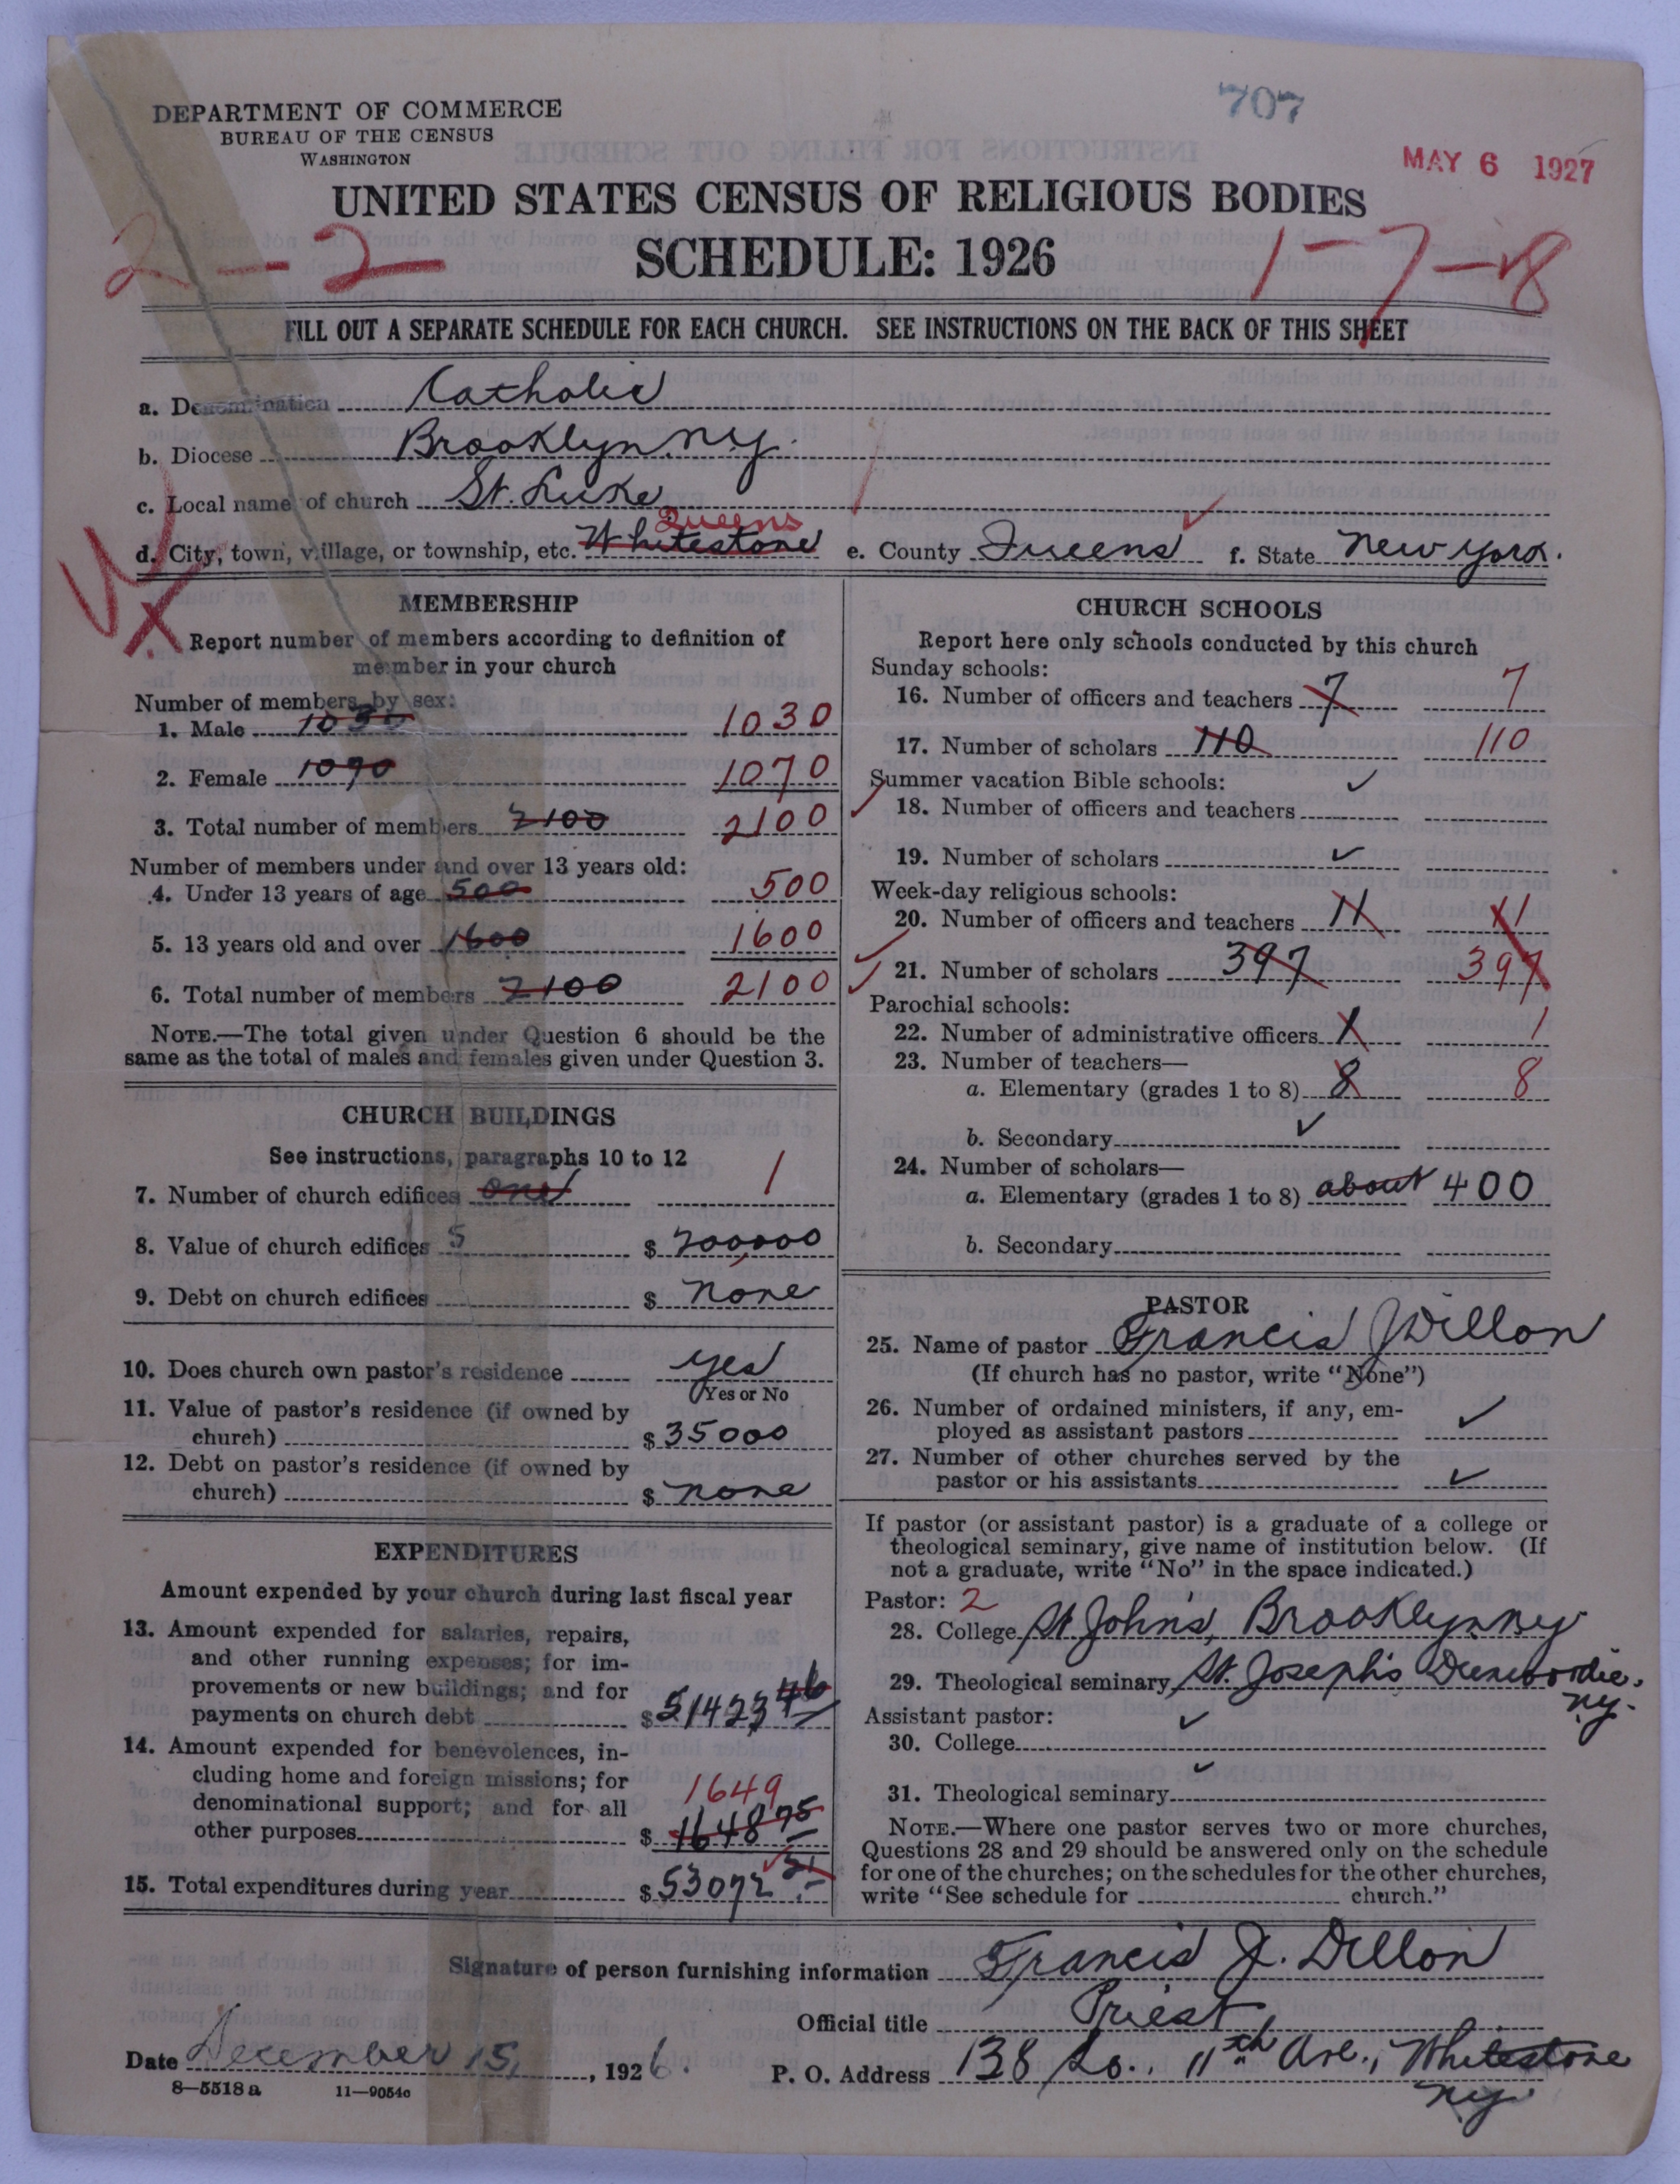 707
DEPARTMENT OF COMMERCE
BUREAU OF THE CENSUS
WASHINGTON
MAY 6 1927
UNITED STATES CENSUS OF RELIGIOUS BODIES
SCHEDULE: 1926
2-2
1-7-8
FILL OUT A SEPARATE SCHEDULE FOR EACH CHURCH. SEE INSTRUCTIONS ON THE BACK OF THIS SHEET
a. Denomination Catholic
b. Diocese Brooklyn. N.Y.
c. Local name of church St. Luke
Queens
d. City, town, village, or township, etc. Whitestone e. County Queens f. State New York.
MEMBERSHIP
Report number of members according to definition of
member in your church
Number of members by sex:
1. Male 1030 1030
2. Female 1070 1070
3. Total number of members 2100 2100
Number of members under and over 13 years old:
4. Under 13 years of age 500 500
5. 13 years old and over 1600 1600
6. Total number of members 2100 2100
NOTE.—The total given under Question 6 should be the
same as the total of males and females given under Question 3.
CHURCH BUILDINGS
See instructions, paragraphs 10 to 12
7. Number of church edifices one 1
8. Value of church edifices 5 $ 200000
9. Debt on church edifices $ none
10. Does church own pastor's residence yes
Yes or No
11. Value of pastor's residence (if owned by
church) $ 35000
12. Debt on pastor's residence (if owned by
church) $ none
EXPENDITURES
Amount expended by your church during last fiscal year
13. Amount expended for salaries, repairs,
and other running expenses; for im-
provements or new buildings; and for
payments on church debt $ 51423 46
14. Amount expended for benevolences, in-
cluding home and foreign missions; for
denominational support; and for all
1649
other purposes $ 1648 75
15. Total expenditures during year $ 53072 21
CHURCH SCHOOLS
Report here only schools conducted by this church
Sunday schools:
16. Number of officers and teachers 7 7
17. Number of scholars 110 110
Summer vacation Bible schools:
18. Number of officers and teachers
19. Number of scholars
Week-day religious schools:
20. Number of officers and teachers 11 11
21. Number of scholars 397 397
Parochial schools:
22. Number of administrative officers 1 1
23. Number of teachers—
a. Elementary (grades 1 to 8) 8 8
b. Secondary
24. Number of scholars—
a. Elementary (grades 1 to 8) about 400
b. Secondary
PASTOR
25. Name of pastor Francis J Dillon
(If church has no pastor, write "None")
26. Number of ordained ministers, if any, em-
ployed as assistant pastors
27. Number of other churches served by the
pastor or his assistants
If pastor (or assistant pastor) is a graduate of a college or
theological seminary, give name of institution below. (If
not a graduate, write "No" in the space indicated.)
Pastor: 2
28. College St John's, Brooklyn, NY
29. Theological seminary St. Joseph's Dunwoodie,
N.Y.
Assistant pastor:
30. College
31. Theological seminary
NOTE.—Where one pastor serves two or more churches,
Questions 28 and 29 should be answered only on the schedule
for one of the churches; on the schedules for the other churches,
write "See schedule for church."
Signature of person furnishing information Francis J. Dillon
Official title Priest
Date December 15, 1926. P. O. Address 138 So. 11th Ave., Whitestone
N.Y.
8—5518a 11—9054c